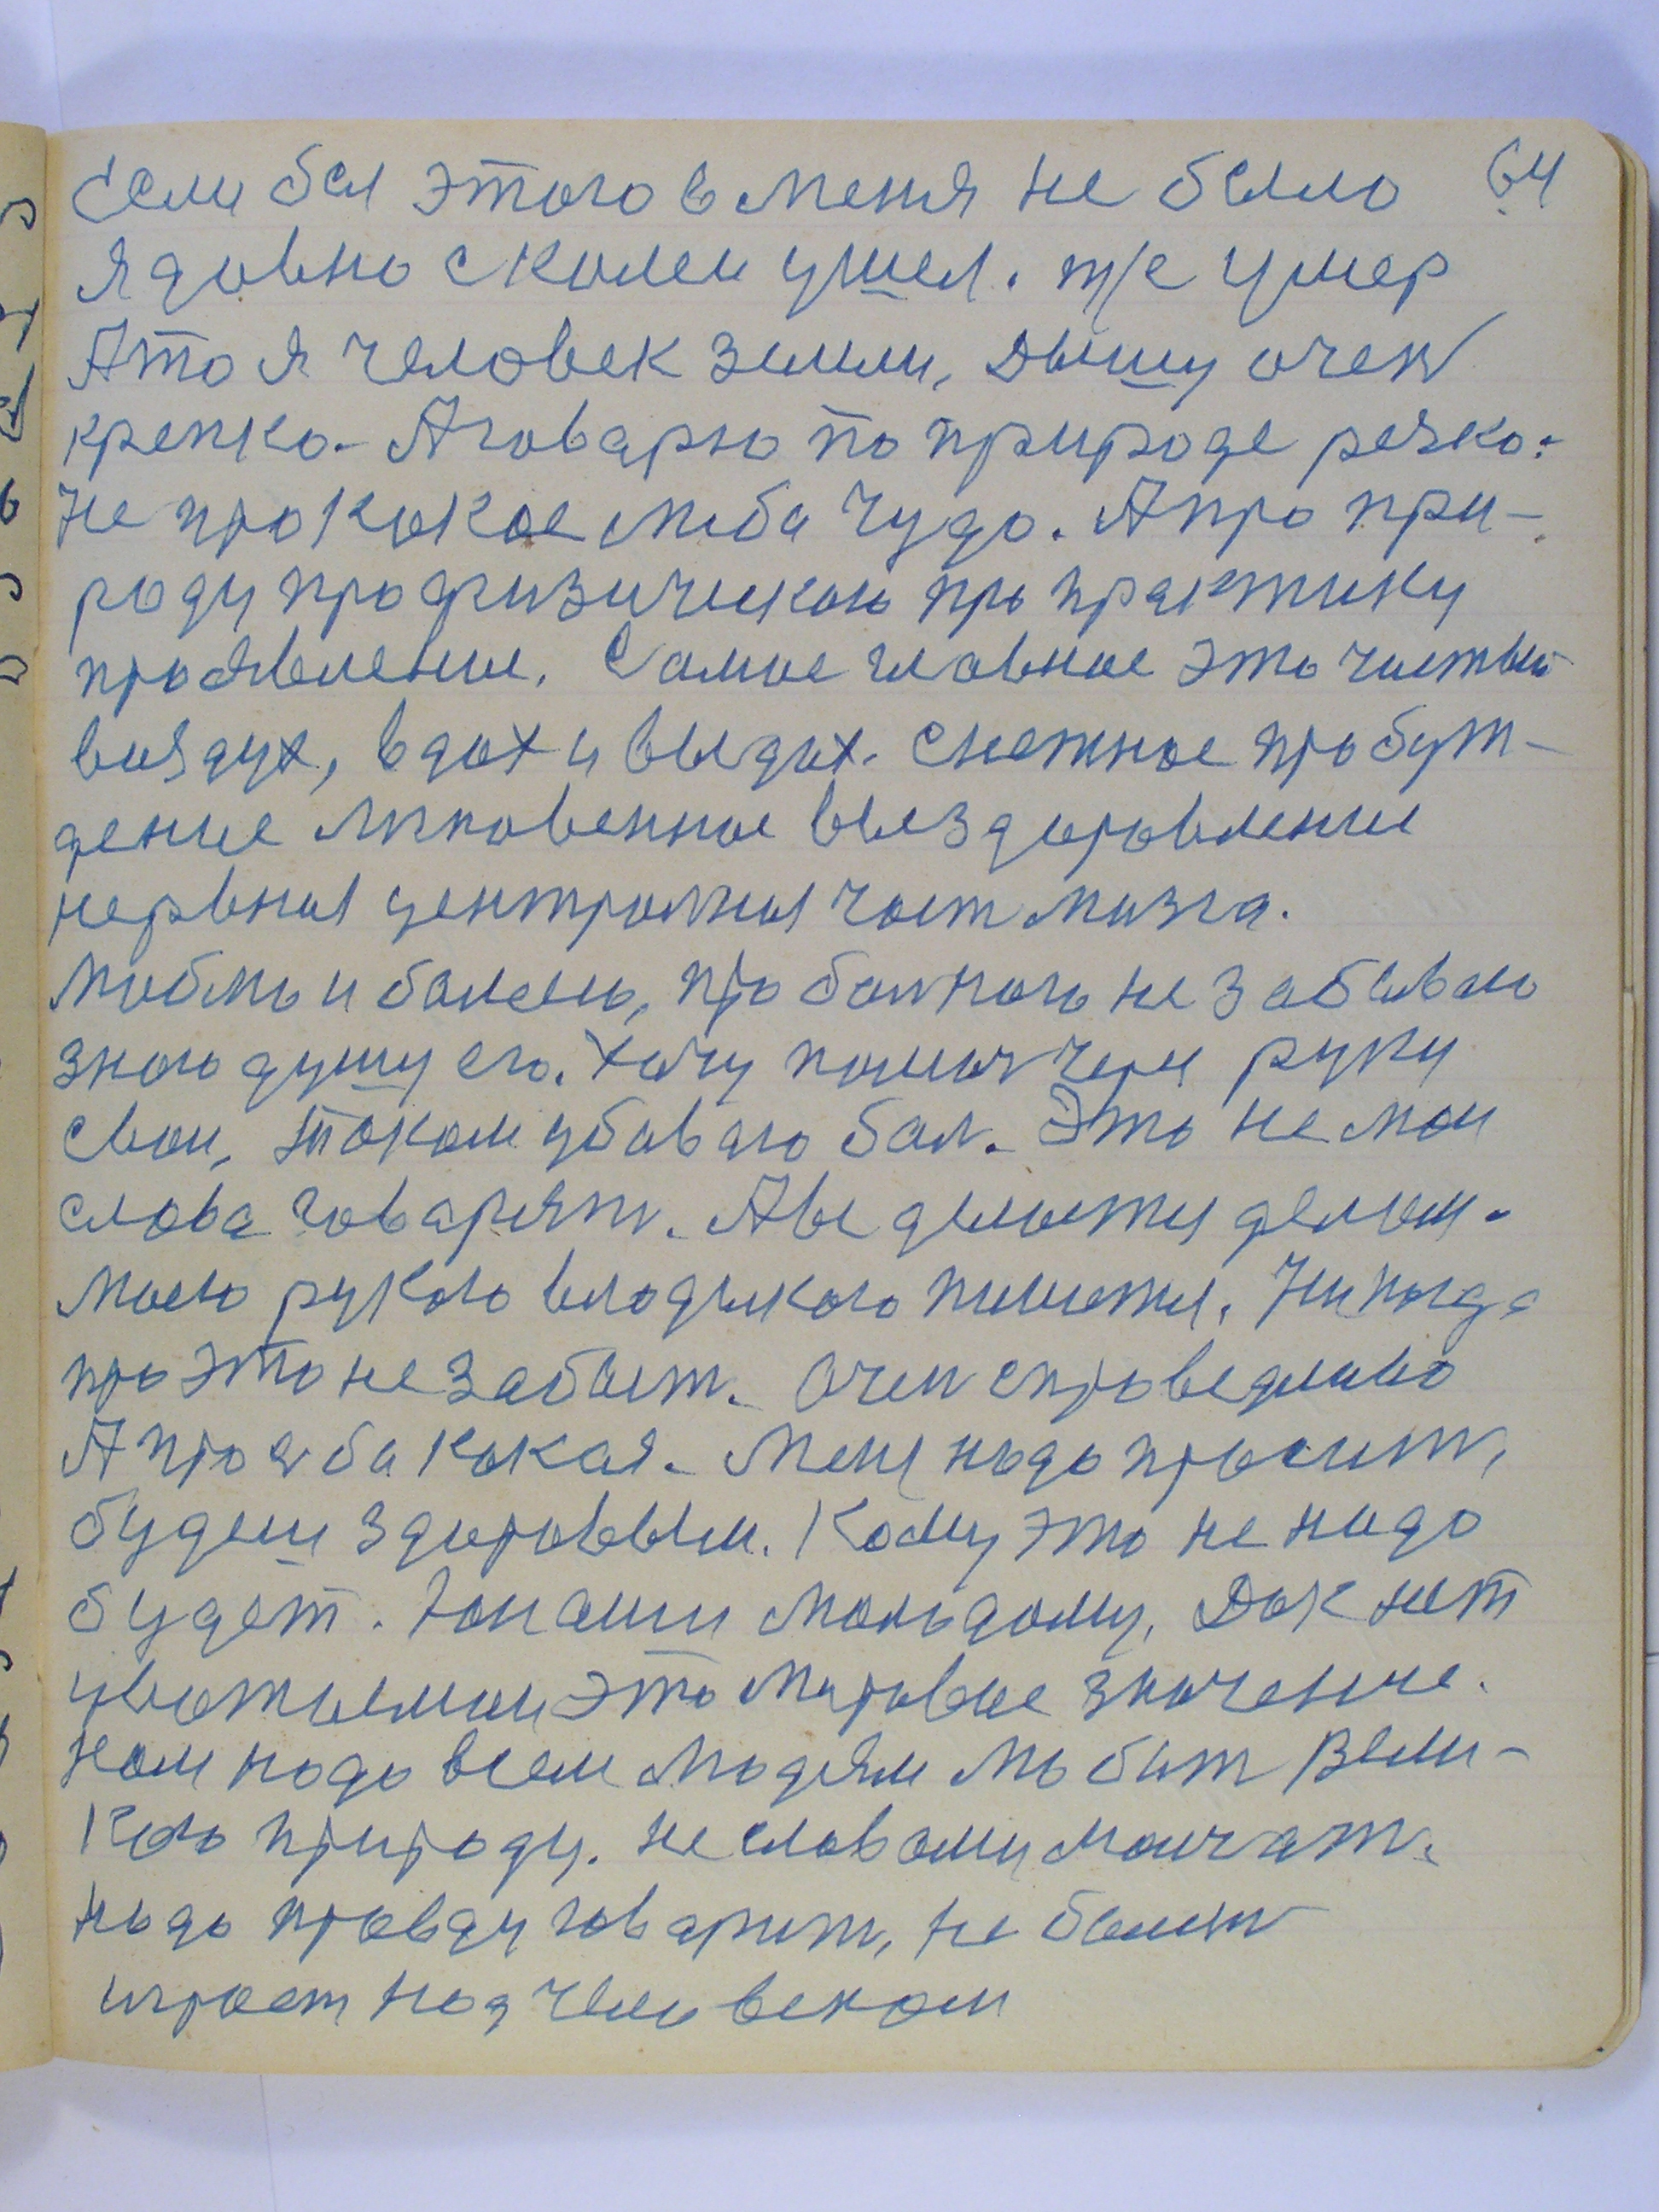 Если бы этого в меня не было 64
Я давно с колеи ушел. т/е умер
А то я человек земли, Дышу очен
крепко. А говарю по природе резко.
Не про какое либа чудо. А про при-
роду про физическою про практику
проявление. Самое главное это чистый
воздух, вдох и выдох. снежное пробуж-
дение мгновенное выездоровление
нервная централная част мозга.
люблю и болею, про болного не забываю
знаю душу его. Хочу помоч через руки
свои, током убываю бол. Это не мои
слова говарят. А все делается делом.
Моею рукою владыкою пишется. Никогда
про это не забыт. Очен справедливо
А прозба какая. Меня надо просит,
будеш здоровым. Кому это не надо
будет. молодому, Док нет
это мировое значение.
Нам надо всем людям любит Вели-
кою природу. не словами молчат.
надо правду говарит, не болеш
играет над человеком